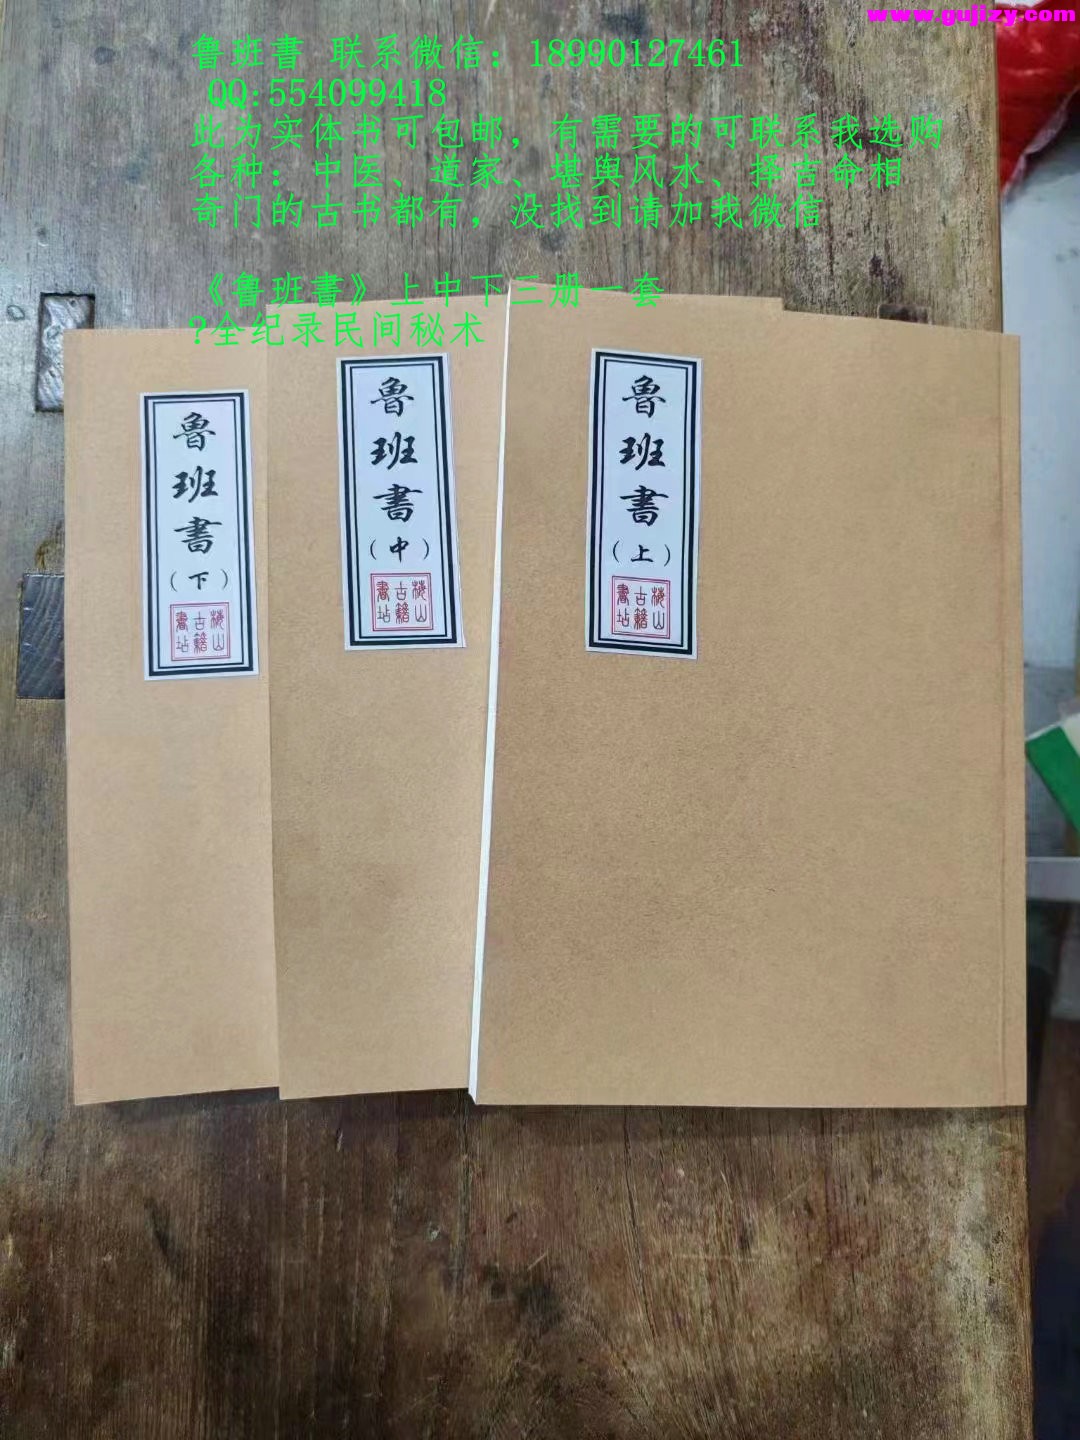 www.gujizy.com
鲁班書 联系微信：18990127461
QQ:554099418
此为实体书可包邮，有需要的可联系我选购
各种：中医、道家、堪舆风水、择吉命相
奇门的古书都有，没找到请加我微信
《鲁班書》上中下三册一套
?全纪录民间秘术
魯班書（下）
梅山古籍書坫
魯班書（中）
梅山古籍書坫
魯班書（上）
梅山古籍書坫